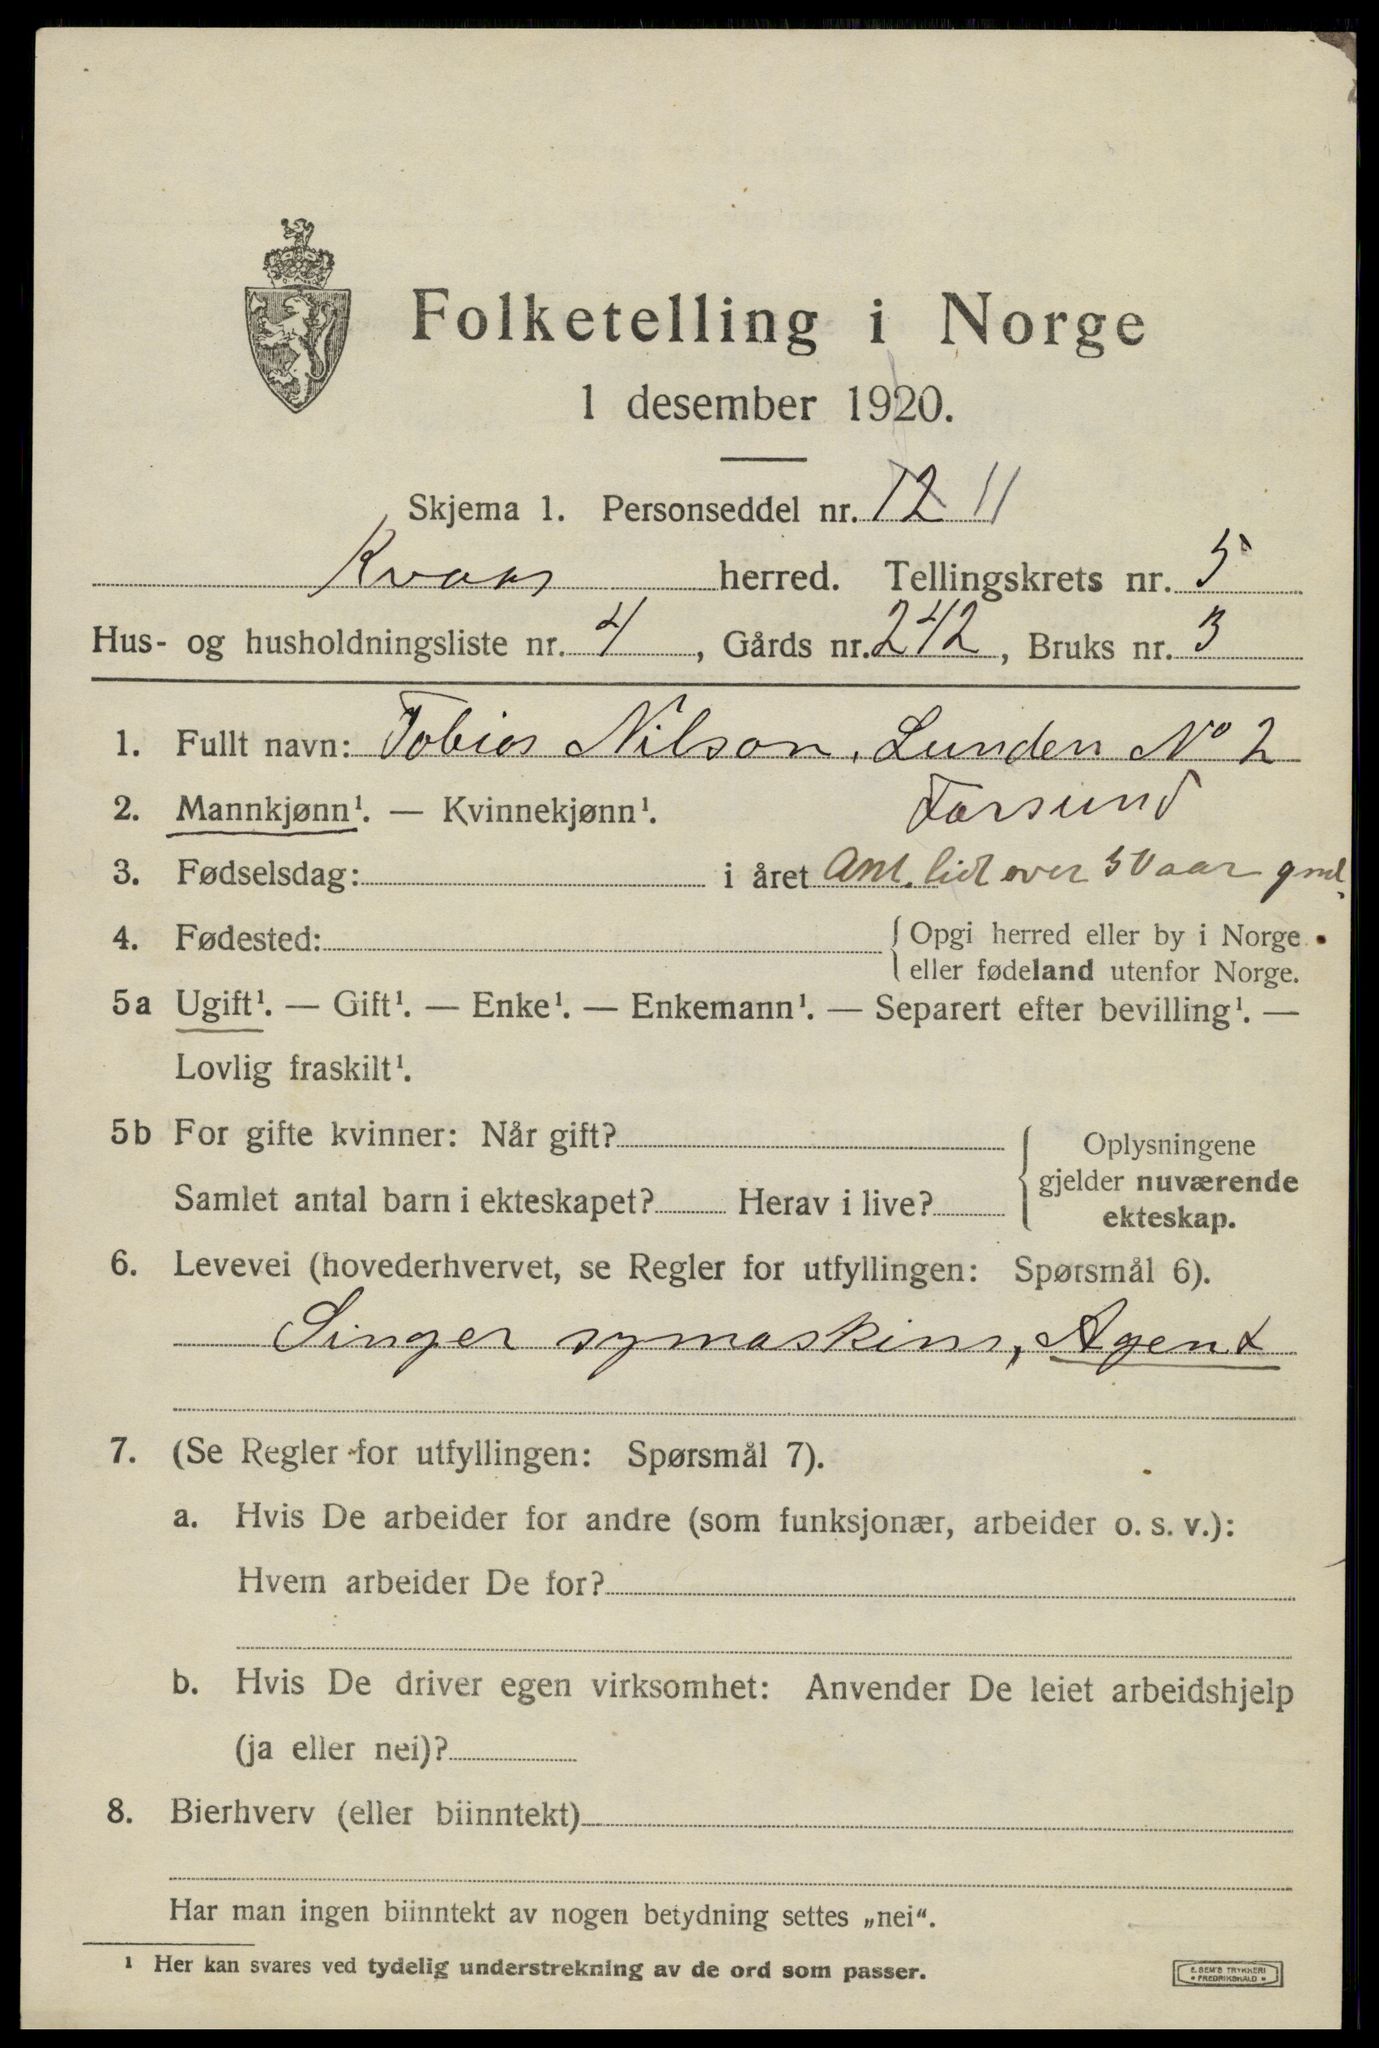 Folketelling i Norge
1 desember 1920.
Skjema 1. Personseddel nr. 12 11
Kvaas herred. Tellingskrets nr. 5
Hus- og husholdningsliste nr. 4, Gårds nr. 242, Bruks nr. 3
1. Fullt navn: Tobias Nilson, Lunden No 2
2. Mannkjønn¹. — Kvinnekjønn¹. Farsund
3. Fødselsdag: i året Ant. lidt over 50 aar gml.
4. Fødested: Opgi herred eller by i Norge
eller fødeland utenfor Norge.
5a Ugift¹. — Gift¹. — Enke¹. — Enkemann¹. — Separert efter bevilling¹. —
Lovlig fraskilt¹.
5b For gifte kvinner: Når gift? Oplysningene
gjelder nuværende
Samlet antal barn i ekteskapet? Herav i live? ekteskap.
6. Levevei (hovederhvervet, se Regler for utfyllingen: Spørsmål 6).
Singer symaskins, Agent
7. (Se Regler for utfyllingen: Spørsmål 7).
a. Hvis De arbeider for andre (som funksjonær, arbeider o. s. v.):
Hvem arbeider De for?
b. Hvis De driver egen virksomhet: Anvender De leiet arbeidshjelp
(ja eller nei)?
8. Bierhverv (eller biinntekt)
Har man ingen biinntekt av nogen betydning settes „nei“.
¹ Her kan svares ved tydelig understrekning av de ord som passer.
E. SEM'S TRYKKERI
FREDRIKSHALD